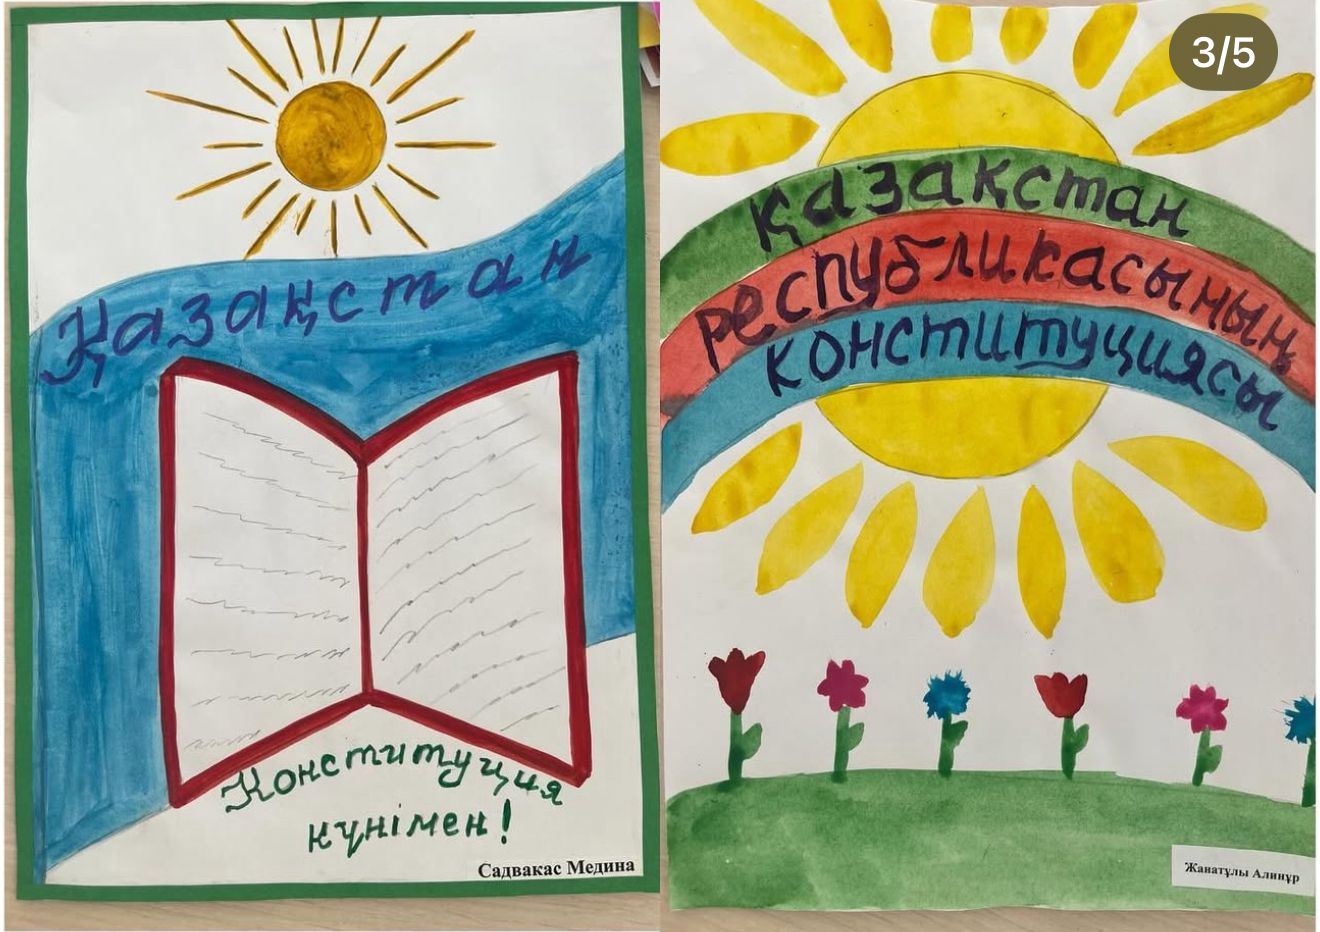 Қазақстан
Конституция
күнімен!
Садвакас Медина
3/5
қазақстан
республикасының
конституциясы
Жанатұлы Алинұр